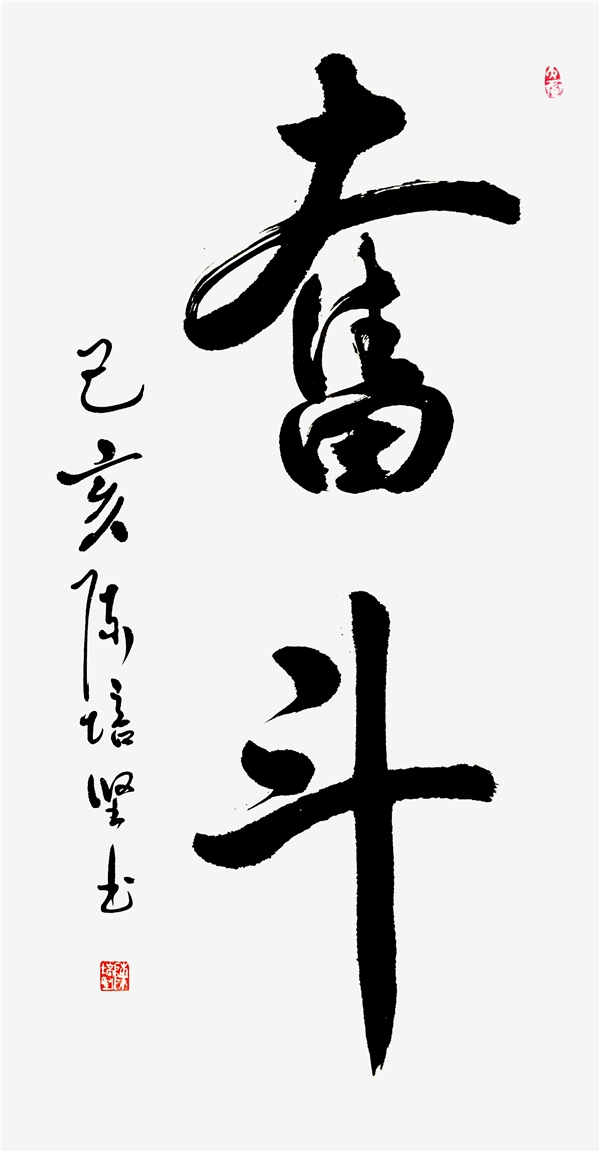 奮斗
己亥陈培坚书